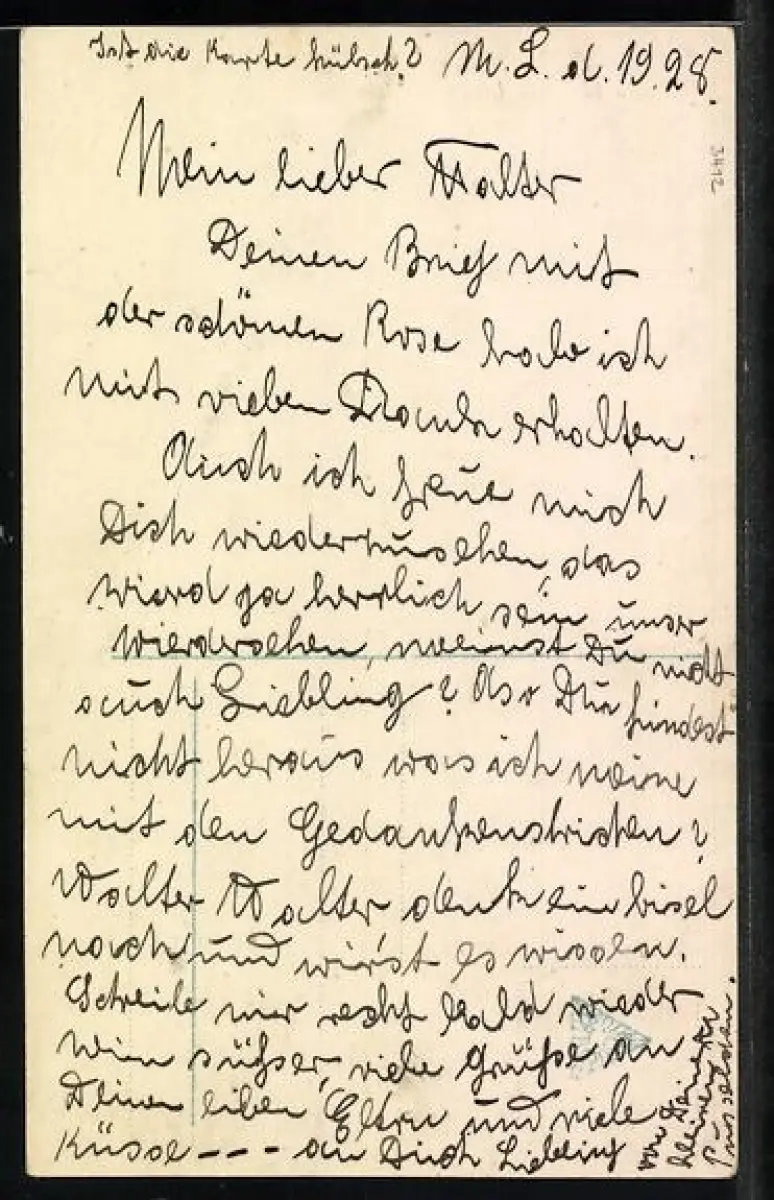 Ist die Karte hübsch? M. L. d. 19.28.
3412
Mein lieber Walter
Deinen Brief mit
der schönen Rose habe ich
mit vielen Dank erhalten.
Auch ich freue mich
Dich wiederzusehen, das
wierd ja herrlich sein unser
wiedersehen, meinst Du nicht
auch Liebling? Also Du findest
nicht heraus was ich meine
mit den Gedankenstrichen?
Walter Walter denk ein bisel
nach und wirst es wissen.
Schreibe mir recht bald wieder
mein süßser, viele Grüße an
Deinen lieben Eltern und viele
Küsse - - - an Dich Liebling
von Deinem
kleinen